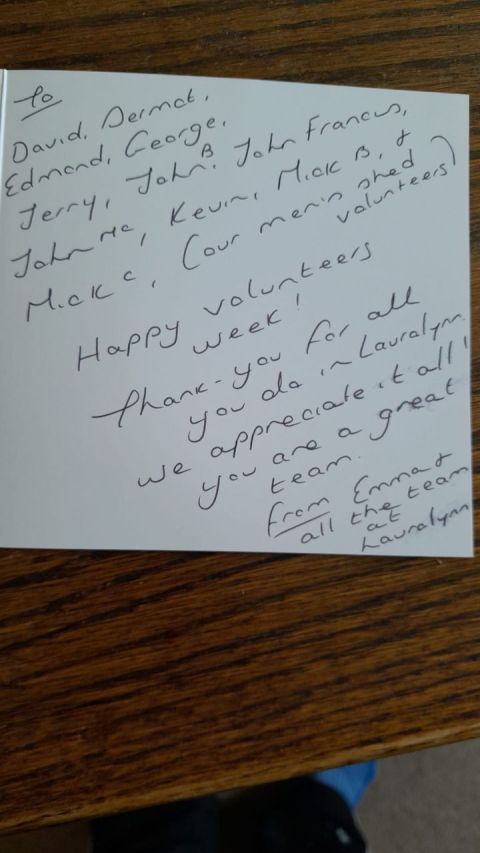 To
David, Dermot,
Edmond, George,
Jerry, John B, John Francis,
John Mc, Kevin, Mick B, &
Mick C, (our men's shed
volunteers)
Happy volunteers
week!
Thank-you for all
you do in Lauralynn
we appreciate it all!
you are a great
team.
From Emma &
all the team
at
Lauralynn